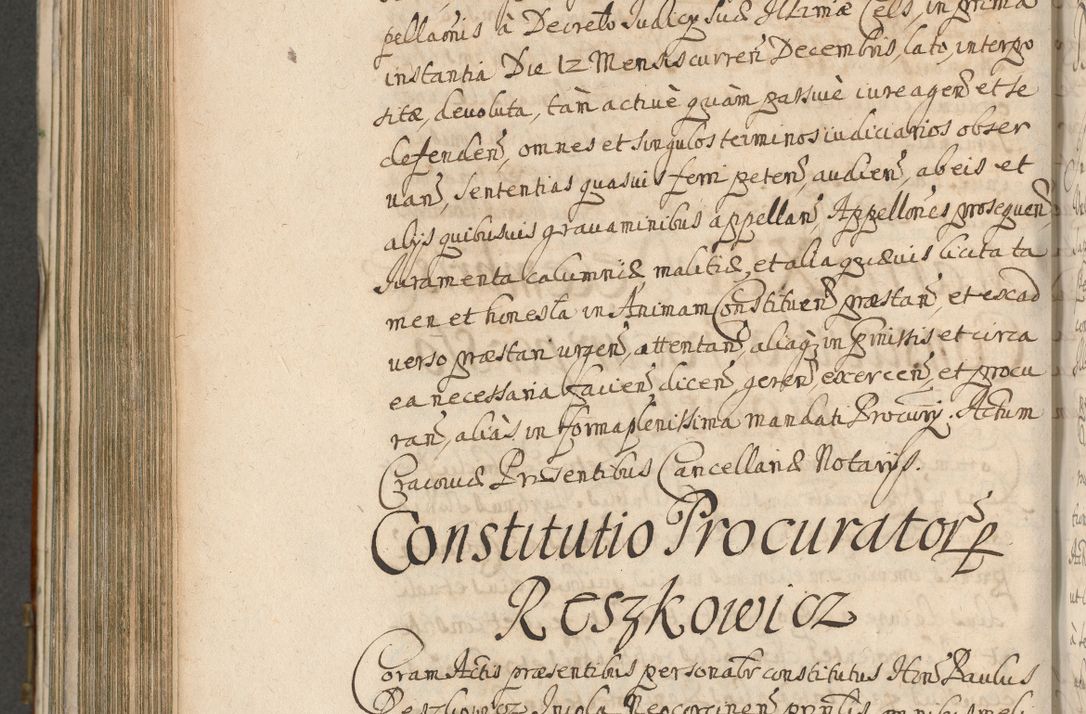 pellaōnis à Decreto Iudicÿ suæ Illimæ Cels, in prima
instantia Die 12 Mensis curreñ Decembris, lato, interpo
sitæ, devoluta, tàm activè quàm passivè iure ageñ et se
defendeñ, omnes et singulos terminos iudiciarios obser
vañ, sententias quasvis ferri peteñ, audieñ, ab eis et
alÿs quibusvis gravaminibus appellañ, Appellōnes prosequeñ
Iuramenta calumniæ, malitiæ, et alia quævis licita ta
men et honesta in Animam Constitueñ præstañ, et ex ad
verso præstari urgeñ, attentañ, aliaq; in pmissis et circa
ea necessaria facieñ, diceñ, gereñ, exerceñ, et procu
rañ, alias in forma plenissima mandati Procurÿ. Actum
Cracoviæ Præsentibus Cancellariæ Notarÿs.
Constitutio Procurator̃ p
Reszkowicz
Coram Actis præsentibus personalr constitutus Hoñ Paulus
Reszkowicz Incola Neocorcineñ